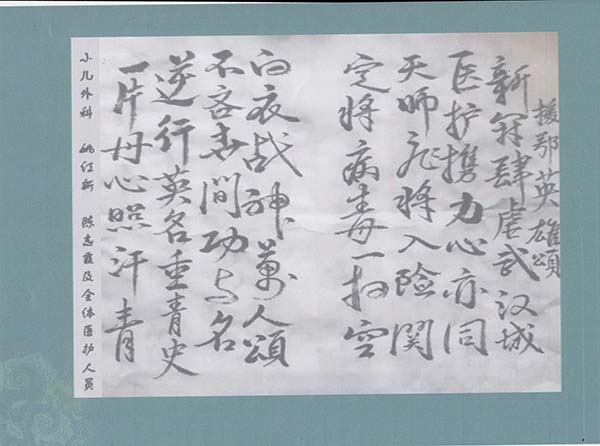 援鄂英雄頌
新冠肆虐武汉城
医护携力心亦同
天师飞将入险関
定将病毒一扫空
白衣战神萬人頌
不吝世間功与名
逆行英名垂青史
一片丹心照汗青
小儿外科 姚红新 陈志霞及全体医护人员